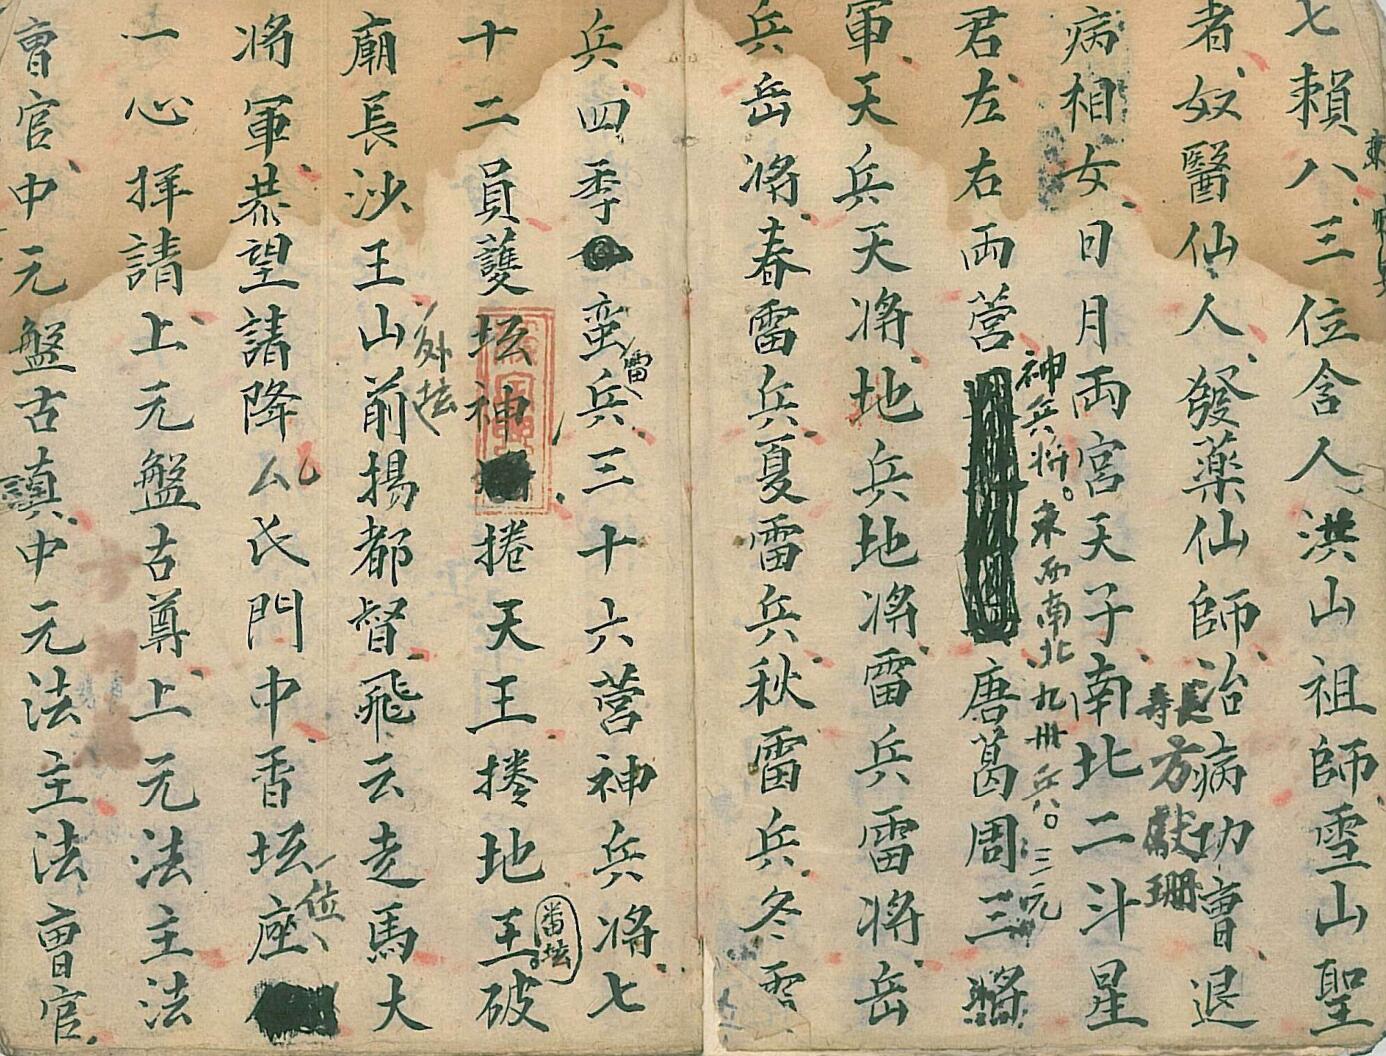 七賴八三位含人洪山祖師雪山聖
者奴醫仙人發藥仙師治病功曹退
長壽
方獻珊
病相女日月兩宮天子南北二斗星
神兵將。東西南北九卅兵。三元
君左右兩營唐葛周三將
軍天兵天將地兵地將雷兵雷將岳
兵岳將春雷兵夏雷兵秋雷兵冬雷
兵四季蛮雷兵三十六營神兵將七
十二員護坛神捲天王捲地王破
番坛
外坛
廟長沙王山前揚都督飛云走馬大
將軍恭望請降厶氏門中香坛座位
一心拜請上元盤古尊上元法主法
曹官中元盤古真中元法主法曹官